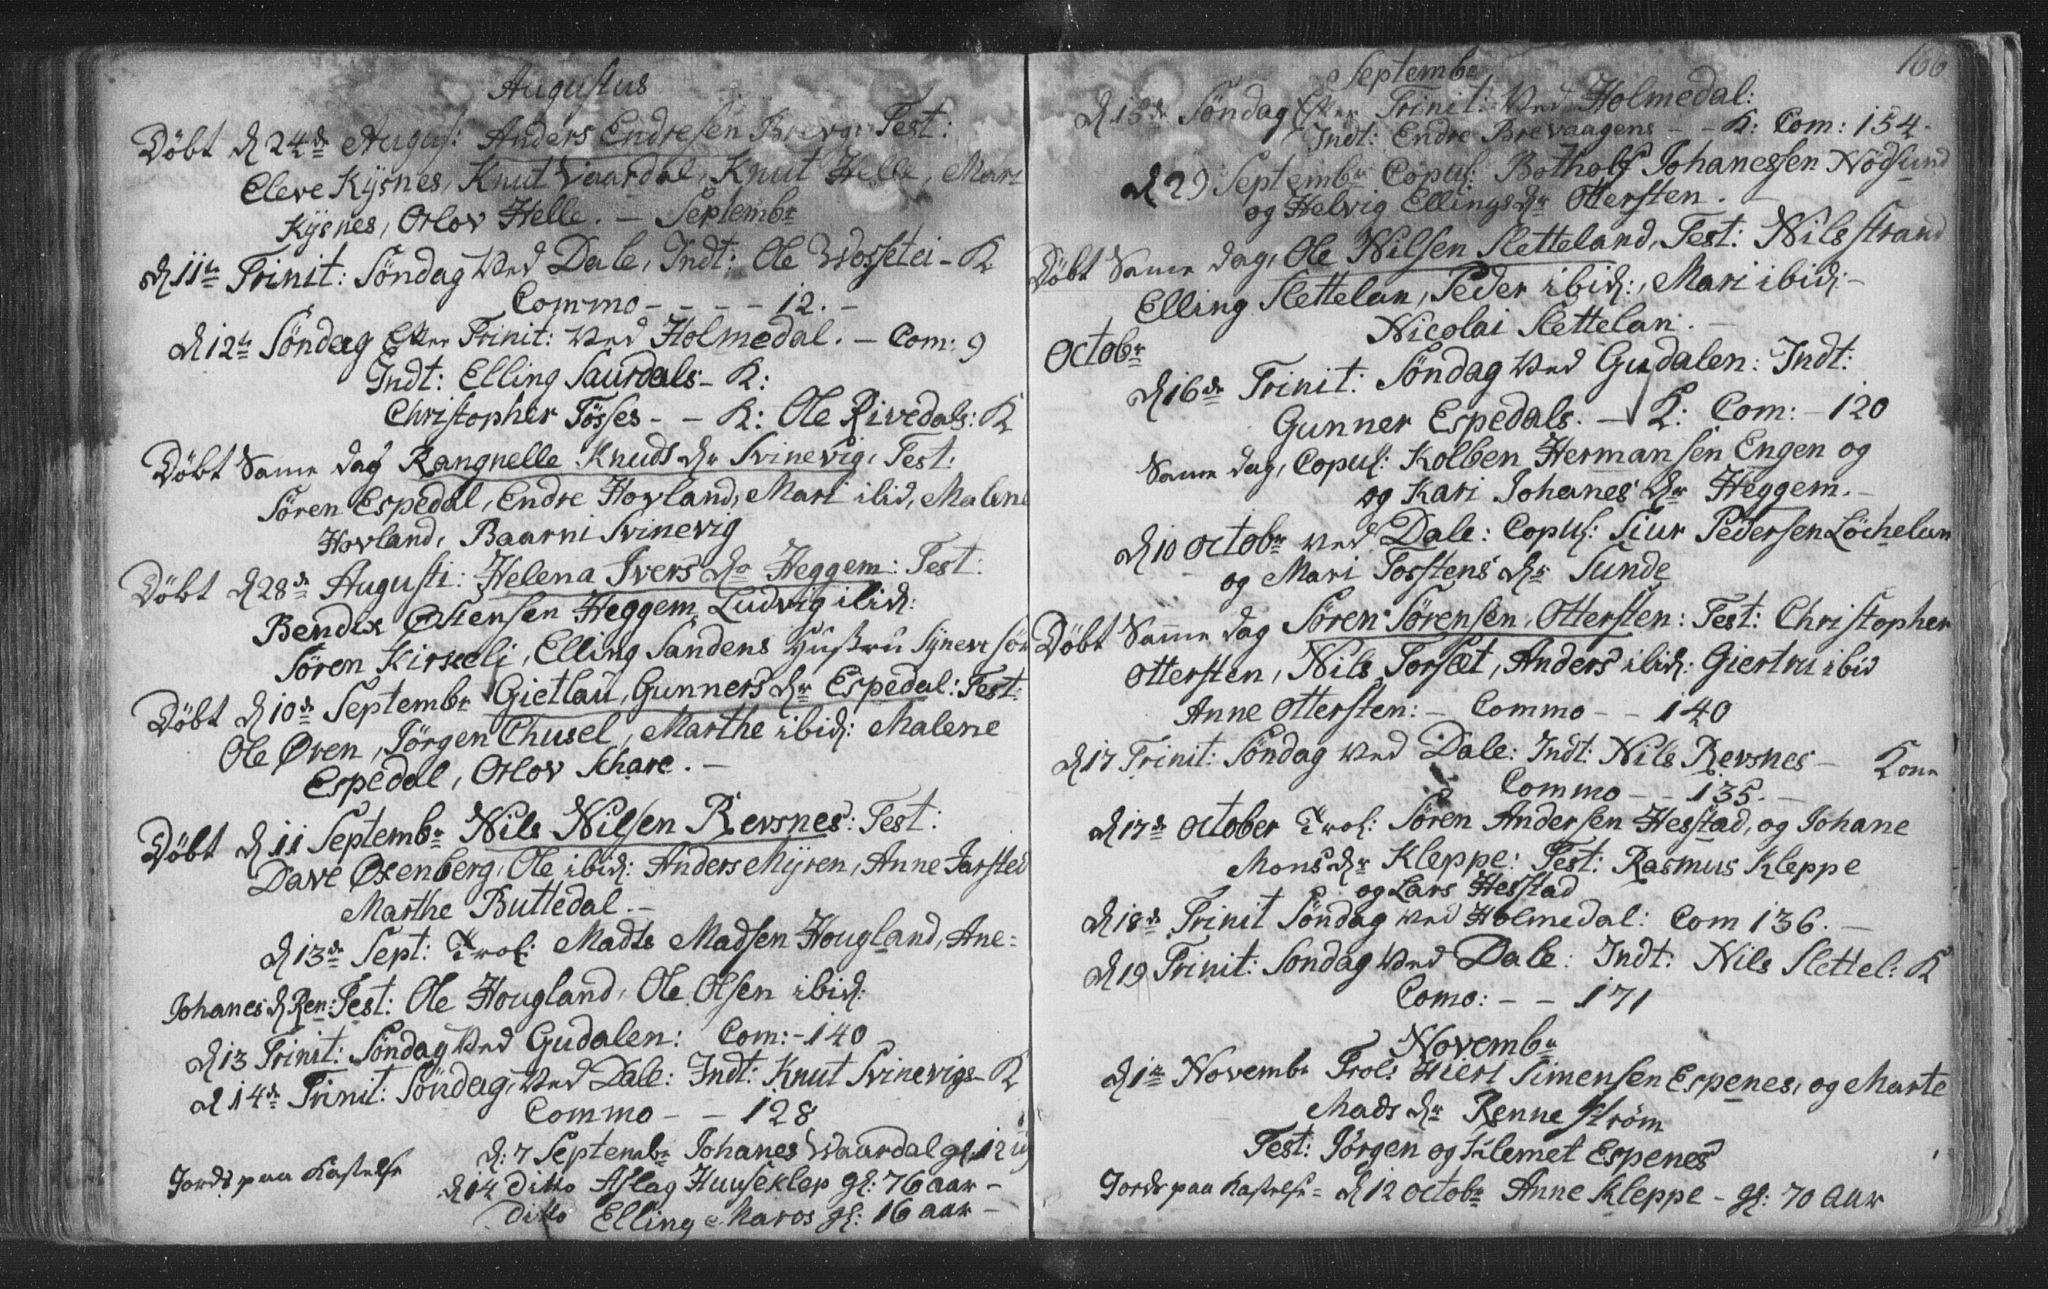 Augustus
Døbt d 24de August: Anders Endresen Brevg: Test:
Eleve Kysnes, Knut Vaardal, Knut Helle, Mari
Kysnes, Orlov Helle. — Septembr
d 11te Trinit: Søndag Ved Dale, Indt: Ole Wossetei - K
Commo - - - - 12. -
d 12te Søndag Efter Trinit: Ved Holmedal. - Com: 9
Indt: Elling Saurdals - K:
Christopher Tøsses - - K: Ole Rivedals: K
Døbt Same dag Rangnelle Knuds dr Svinevig, Test:
Søren Espedal, Endre Hovland, Mari ibid, Malene
Hovland, Baarni Svinevig
Døbt d 28de Augusti: Helena Ivers dr Heggem: Test:
Bendix Østensen Heggem, Ludvig ibid:
Søren Kirkeli, Elling Sandens Hustru Syneve
Døbt d 10de Septembr Gietlau, Gunners dr Espedal: Test:
Ole Øren, Jørgen Chusel, Marthe ibid: Malene
Espedal, Orlov Schare. -
Døbt d 11 Septembr Nils Nilsen Revsnes: Test:
Dave Øxenberg, Ole ibid: Anders Myren, Anne Jarsted
Marthe Buttedal. -
d 13de Sept: Trol: Madts Madsen Hougland, Ane =
Johanes d Ren: Test: Ole Hougland, Ole Olsen ibid:
d 13 Trinit: Søndag Ved Gudalen: Com: - 140
d 14de Trinit: Søndag, Ved Dale: Indt: Knut Svinevigs - K
Commo - - 128
d: 7 Septembr Johanes Waardal gl: 12 ug
Jords paa Kastelse d 14 ditto Aslag Huuseklep gl: 76 aar -
ditto Elling Maros gl: 16 aar -
Septembr 166
d 15de Søndag Efter Trinit: Ved Holmedal:
Indt: Endre Brevaagens - - K: Com: 154.
d 29 Septembr Copul: Botholf Johanessen Nødsund
og Helvig Ellings dr Ottersten. -
Døbt Same dag, Ole Nilsen Sletteland, Test: Nils Strand
Elling Slettelan, Peder ibid:, Mari ibid: -
Nicolai Slettelan. -
Octobr
d 16de Trinit: Søndag Ved Gudalen: Indt:
Gunner Espedals. - K: Com: - 120
Same dag, Copul: Kolben Hermansen Engen og
og Kari Johanes dr Heggem. -
d 10 Octobr ved Dale: Copul: Siur Pedersen Løchelan
og Mari Torstens dr Sunde
Døbt Samme dag Søren Sørensen, Ottersten: Test: Christopher
Ottersten, Nils Jorsæt, Anders ibid: Giertru ibid
Anne Ottersten: - Commo - - 140
d 17 Trinit: Søndag Ved Dale: Indt: Nils Revsnes - Kone
Commo - - 135. -
d 17de October Trol: Søren Andersen Hesstad, og Johane
Mons dr Kleppe: Test: Rasmus Kleppe
og Lars Hesstad
d 18de Trinit Søndag Ved Holmedal: Com 136. -
d 19 Trinit: Søndag Ved Dale: Indt: Nils Slettel: K
Como: - - 171
Novembr
d 1te Novembr Trol: Hieri Simensen Espenes, og Marte
Mads dr Rennestrøm
Test: Jørgen og Klemet Espenes
Jords paa Kastelse = d 12 Octobr Anne Kleppe - gl: 70 Aar